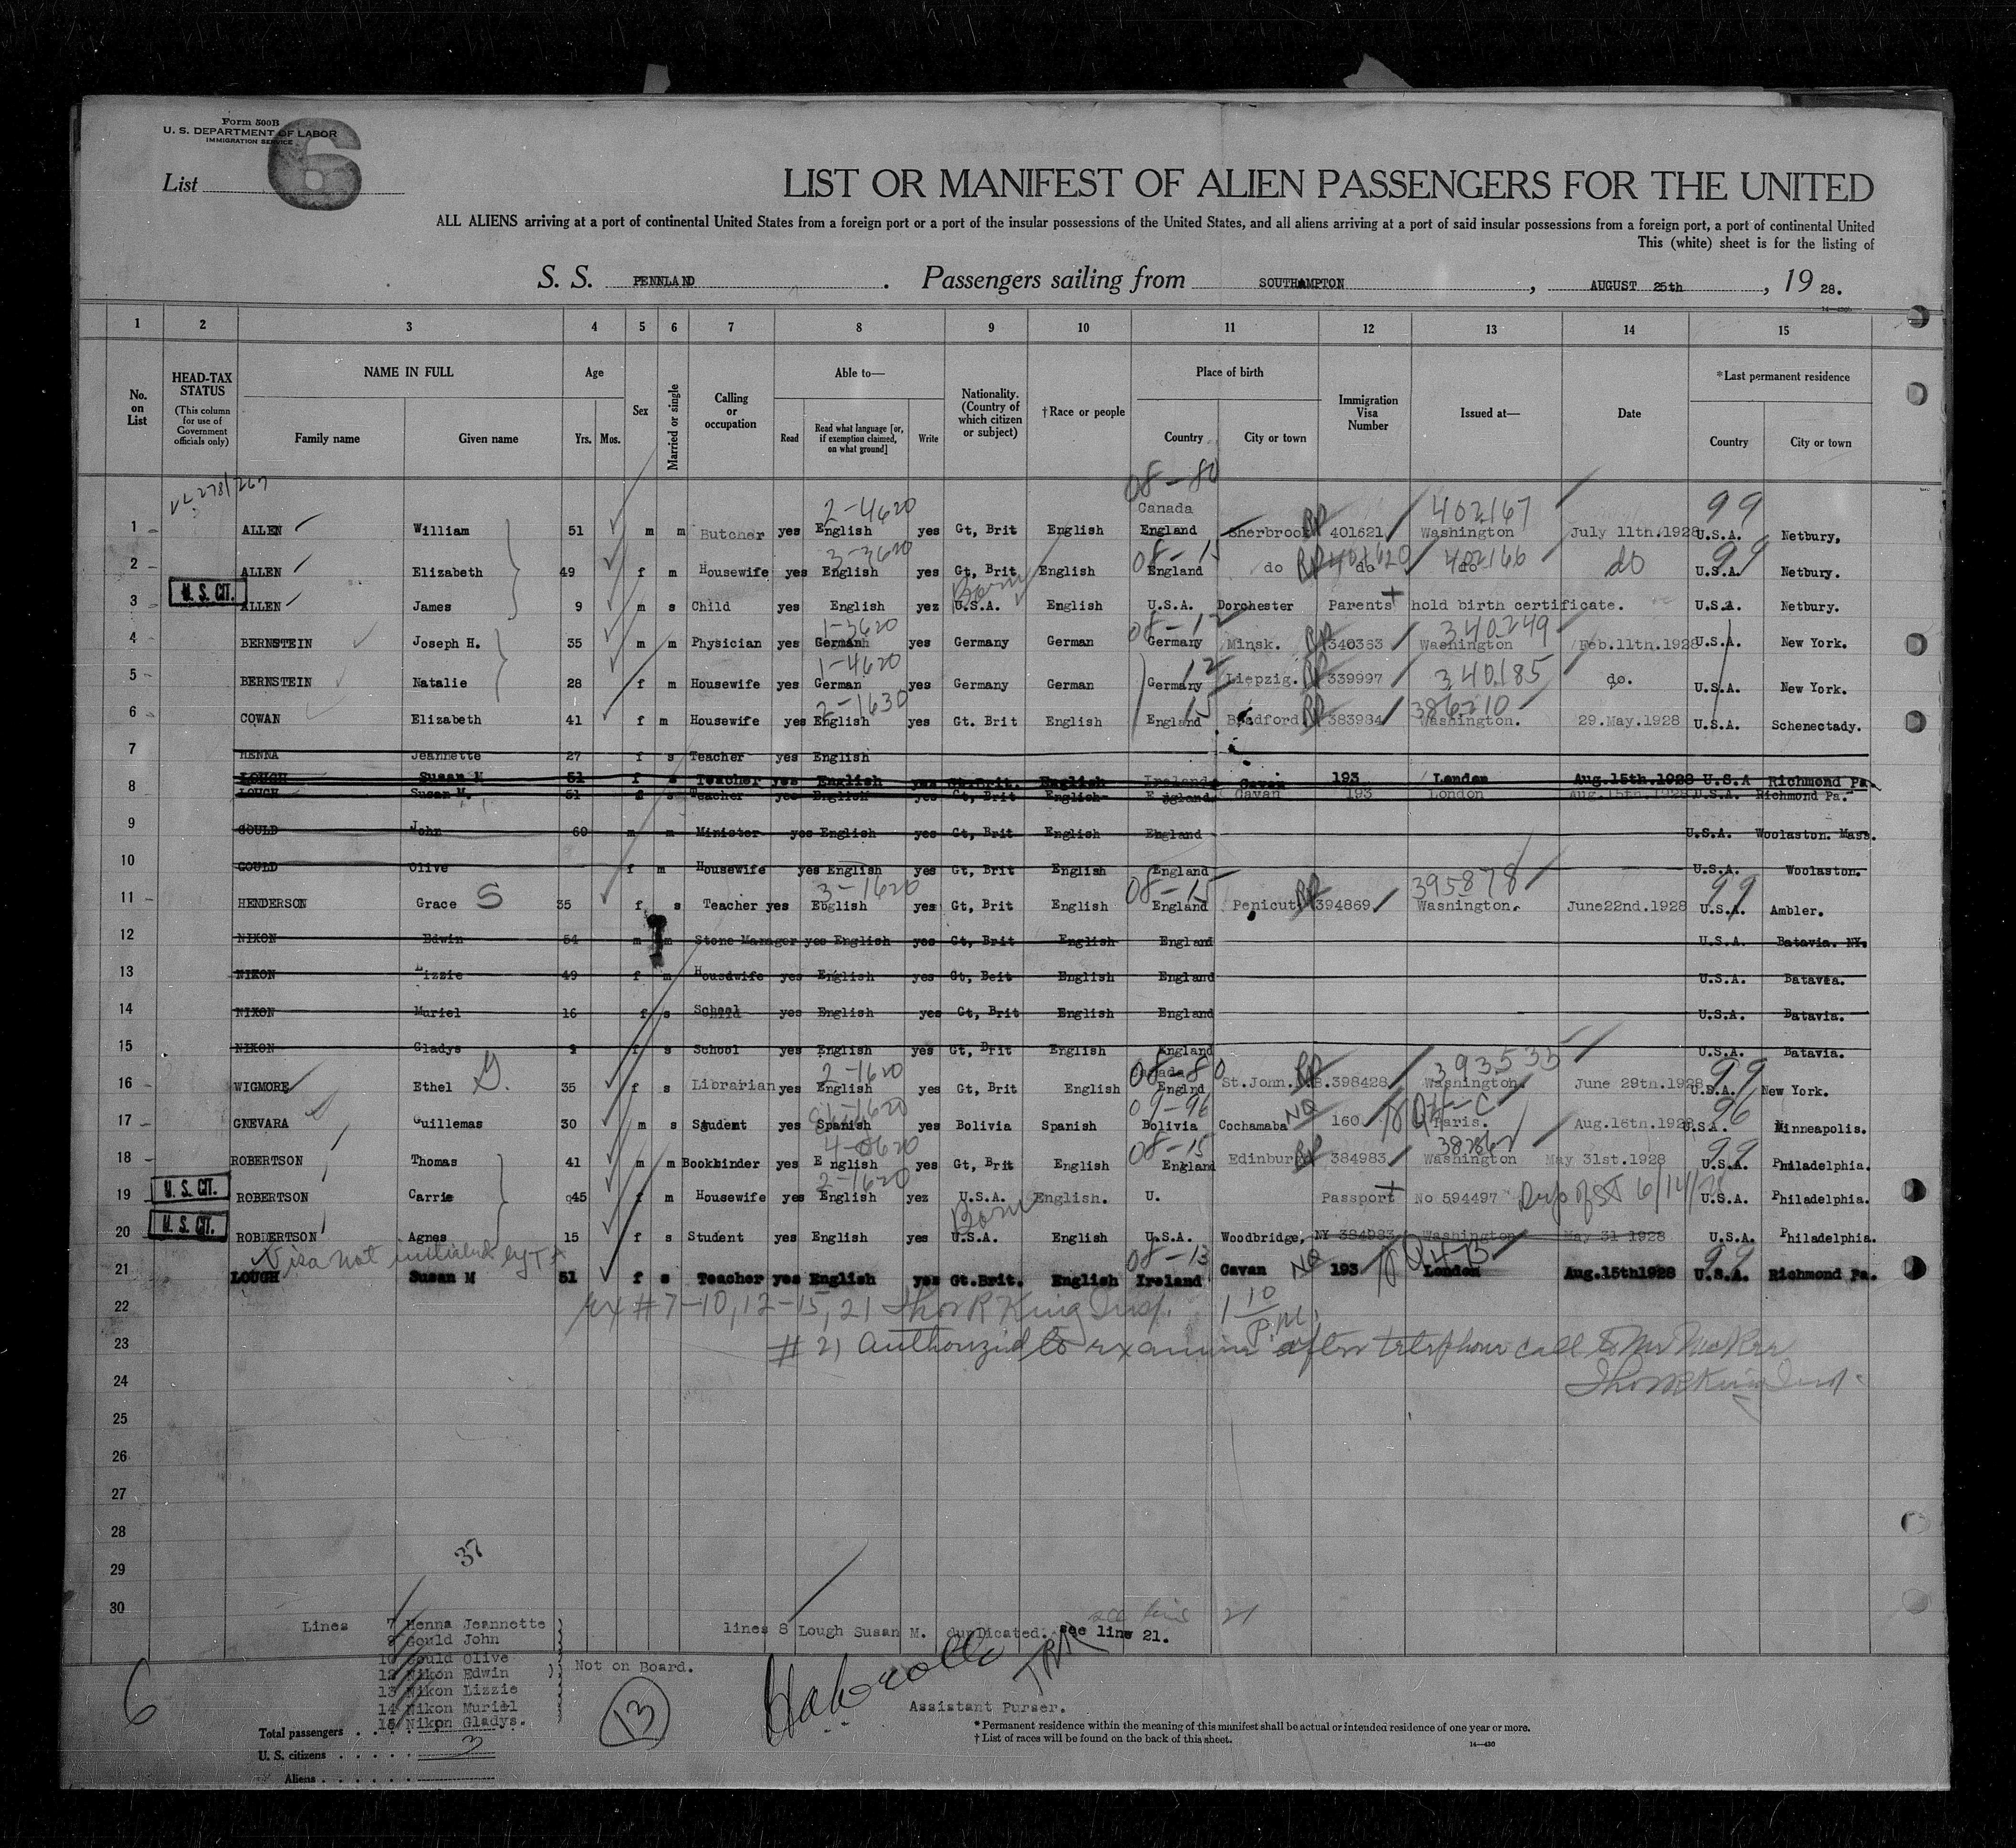 Form 500B
U. S. DEPARTMENT OF LABOR
IMMIGRATION SERVICE
List 6
LIST OR MANIFEST OF ALIEN PASSENGERS FOR THE UNITED
ALL ALIENS arriving at a port of continental United States from a foreign port or a port of the insular possessions of the United States, and all aliens arriving at a port of said insular possessions from a foreign port, a port of continental United
This (white) sheet is for the listing of
S. S. PENNLAND . Passengers sailing from SOUTHAMPTON , AUGUST 25th , 19 28.
1 2 3 4 5 6 7 8 9 10 11 12 13 14 15
No. on List HEAD-TAX STATUS (This column for use of Government officials only) NAME IN FULL Family name Given name Age Yrs. Mos. Sex Married or single Calling or occupation Able to— Read Read what language [or, if exemption claimed, on what ground] Write Nationality. (Country of which citizen or subject) †Race or people Place of birth Country City or town Immigration Visa Number Issued at— Date *Last permanent residence Country City or town
08-80
2-4620 Canada 402167 99
1 ALLEN William 51 m m Butcher yes English yes Gt, Brit English England Sherbrook 401621 Washington July 11th.1928 U.S.A. Netbury.
3-3620 08-15 401620 402166 99
2 ALLEN Elizabeth 49 f m Housewife yes English yes Gt, Brit English England do do do do U.S.A. Netbury.
U. S. CIT. Born
3 ALLEN James 9 m s Child yes English yez U.S.A. English U.S.A. Dorchester Parents hold birth certificate. U.S.A. Netbury.
1-3620 08-12 340249
4 BERNSTEIN Joseph H. 35 m m Physician yes German yes Germany German Germany Minsk. 340363 Washington Feb.11th.1928 U.S.A. New York.
1-4620 12 340185
5 BERNSTEIN Natalie 28 f m Housewife yes German yes Germany German Germany Liepzig. 339997 do. U.S.A. New York.
2-1630 15 386210
6 COWAN Elizabeth 41 f m Housewife yes English yes Gt. Brit English England Bradford 383984 Washington. 29.May.1928 U.S.A. Schenectady.
7 HENNA Jeannette 27 f s Teacher yes English
LOUGH Susan M 51 f s Teacher yes English yes Gt.Brit. English Ireland Cavan 193 London Aug.15th.1928 U.S.A Richmond Pa.
8 LOUGH Susan M. 51 f s Teacher yes English yes Gt, Brit English England Cavan 193 London Aug.15th.1928 U.S.A. Richmond Pa.
9 GOULD John 60 m m Minister yes English yes Gt, Brit English England U.S.A. Woolaston. Mass.
10 GOULD Olive f m Housewife yes English yes Gt, Brit English England U.S.A. Woolaston.
3-1620 08-15 395878 99
11 HENDERSON Grace S 35 f s Teacher yes English yes Gt, Brit English England Penicut 394869. Washington. June22nd.1928 U.S.A. Ambler.
12 NIXON Edwin 54 m m Stone Manager yes English yes Gt, Brit English England U.S.A. Batavia. NY.
13 NIXON Lizzie 49 f m Housdwife yes English yes Gt, Beit English England U.S.A. Batavia.
14 NIXON Muriel 16 f s School yes English yes Gt, Brit English England U.S.A. Batavia.
15 NIXON Gladys 9 f s School yes English yes Gt, Brit English England U.S.A. Batavia.
2-1620 Canada 08-80 393535 99
16 WIGMORE Ethel G. 35 f s Librarian yes English yes Gt, Brit English Englnd St.John. 398428 Washington. June 29th.1928 U.S.A. New York.
1620 09-96 96
17 GNEVARA Guillemas 30 m s Student yes Spanish yes Bolivia Spanish Bolivia Cochamaba 160 Paris. Aug.16th.1928 U.S.A. Minneapolis.
4-0620 08-15 99
18 ROBERTSON Thomas 41 m m Bookbinder yes English yes Gt, Brit English England Edinburg 384983 Washington May 31st.1928 U.S.A. Philadelphia.
U. S. CIT. 2-1620
19 ROBERTSON Carrie 45 f m Housewife yes English yez U.S.A. English. U. Passport No 594497 Dep of ST 6/14/28 U.S.A. Philadelphia.
U. S. CIT. Born
20 ROBDERTSON Agnes 15 f s Student yes English yes U.S.A. English U.S.A. Woodbridge, NY 384983 Washington May 31 1928 U.S.A. Philadelphia.
Visa not initialed by 08-13 99
21 LOUGH Susan M 51 f s Teacher yes English yes Gt.Brit. English Ireland Cavan 193 London Aug.15th1928 U.S.A. Richmond Pa.
22 #7-10, 12-15, 21 Thos R King Insp. 1 10 P.M.
23 #21 Authorized to examine after telephone call to Mr
24 Thos R King Insp.
25
26
27
28
29 37
30
Lines 7 Henna Jeannette
9 Gould John
10 Gould Olive
12 Nikon Edwin
13 Nikon Lizzie
14 Nikon Muriel
15 Nikon Gladys.
Not on Board.
see line 21
lines 8 Lough Susan M. duplicated. see line 21.
TRK
Assistant Purser.
6
13
Total passengers
U. S. citizens 3
Aliens
* Permanent residence within the meaning of this manifest shall be actual or intended residence of one year or more.
† List of races will be found on the back of this sheet.
14—430